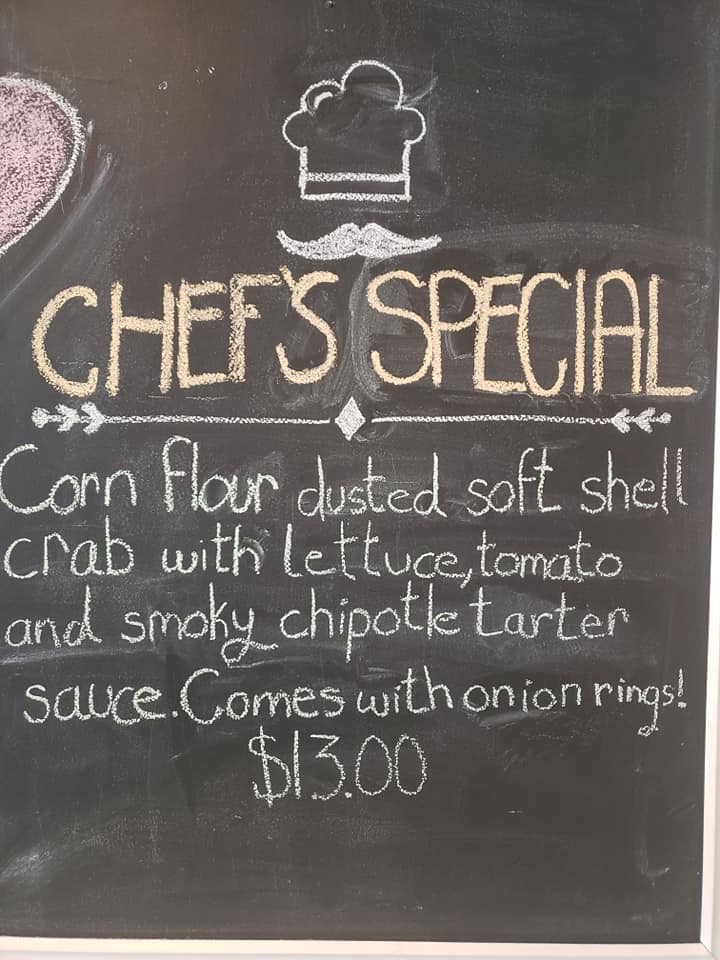 CHEF'S SPECIAL
Corn flour dusted soft shell
crab with lettuce, tomato
and smoky chipotle tarter
sauce. Comes with onion rings!
$13.00